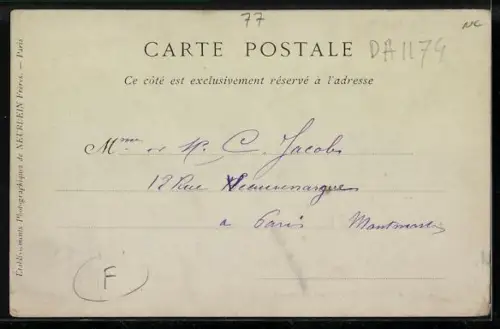 77
nc
CARTE POSTALE
DA1174
Ce côté est exclusivement réservé à l'adresse
Mme et Mr. C. Jacobs
12 Rue Vauvenargues
a Paris Montmartre
F
Etablissements Photographiques de NEURDEIN Frères. — Paris